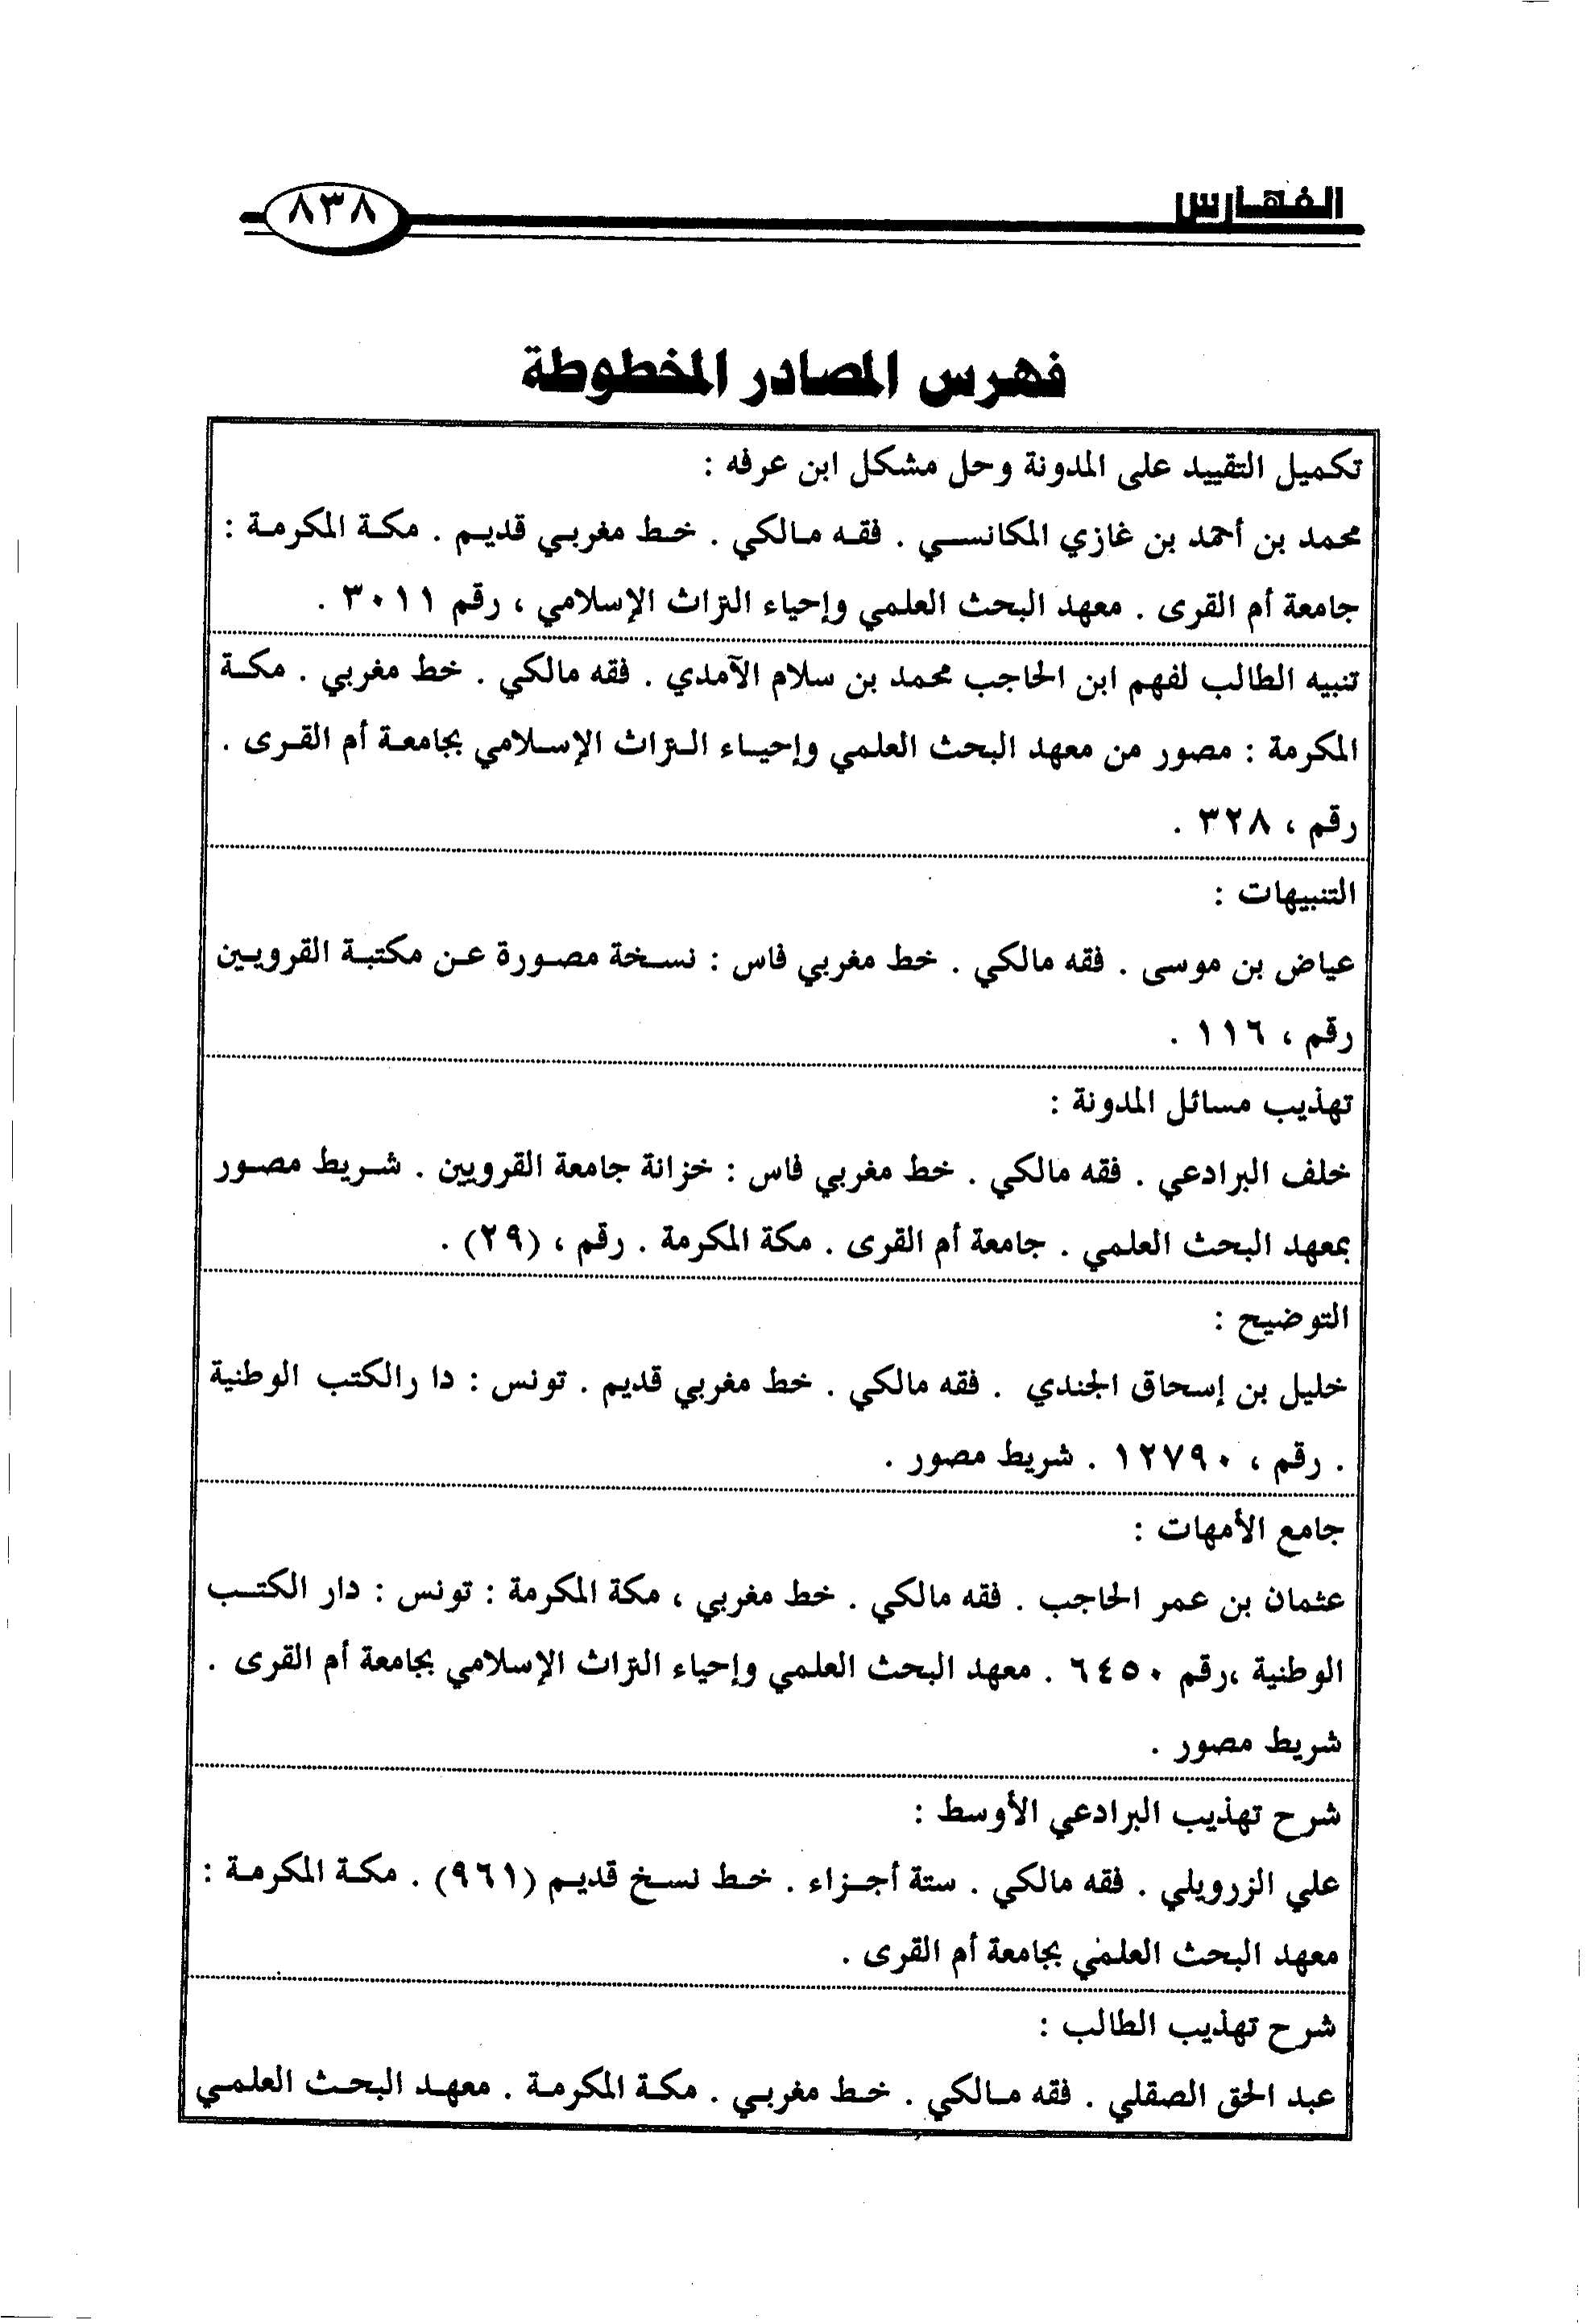 الفهارس
٨٣٨
فهرس المصادر المخطوطة
تكميل التقييد على المدونة وحل مشكل ابن عرفه :
محمد بن أحمد بن غازي المكانسي . فقه مالكي . خط مغربي قديم . مكة المكرمة :
جامعة أم القرى . معهد البحث العلمي وإحياء التراث الإسلامي ، رقم ٣٠١١ .
تنبيه الطالب لفهم ابن الحاجب محمد بن سلام الآمدي . فقه مالكي . خط مغربي . مكة
المكرمة : مصور من معهد البحث العلمي وإحياء التراث الإسلامي بجامعة أم القرى .
رقم ، ٣٢٨ .
التنبيهات :
عياض بن موسى . فقه مالكي . خط مغربي فاس : نسخة مصورة عن مكتبة القرويين
رقم ، ١١٦ .
تهذيب مسائل المدونة :
خلف البرادعي . فقه مالكي . خط مغربي فاس : خزانة جامعة القرويين . شريط مصور
بمعهد البحث العلمي . جامعة أم القرى . مكة المكرمة . رقم ، (٢٩) .
التوضيح :
خليل بن إسحاق الجندي . فقه مالكي . خط مغربي قديم . تونس : دا رالكتب الوطنية
. رقم ، ١٢٧٩٠ . شريط مصور .
جامع الأمهات :
عثمان بن عمر الحاجب . فقه مالكي . خط مغربي ، مكة المكرمة : تونس : دار الكتب
الوطنية ،رقم ٦٤٥٠ . معهد البحث العلمي وإحياء التراث الإسلامي بجامعة أم القرى .
شريط مصور .
شرح تهذيب البرادعي الأوسط :
علي الزرويلي . فقه مالكي . ستة أجزاء . خط نسخ قديم (٩٦١) . مكة المكرمة :
معهد البحث العلمي بجامعة أم القرى .
شرح تهذيب الطالب :
عبد الحق الصقلي . فقه مالكي . خط مغربي . مكة المكرمة . معهد البحث العلمي